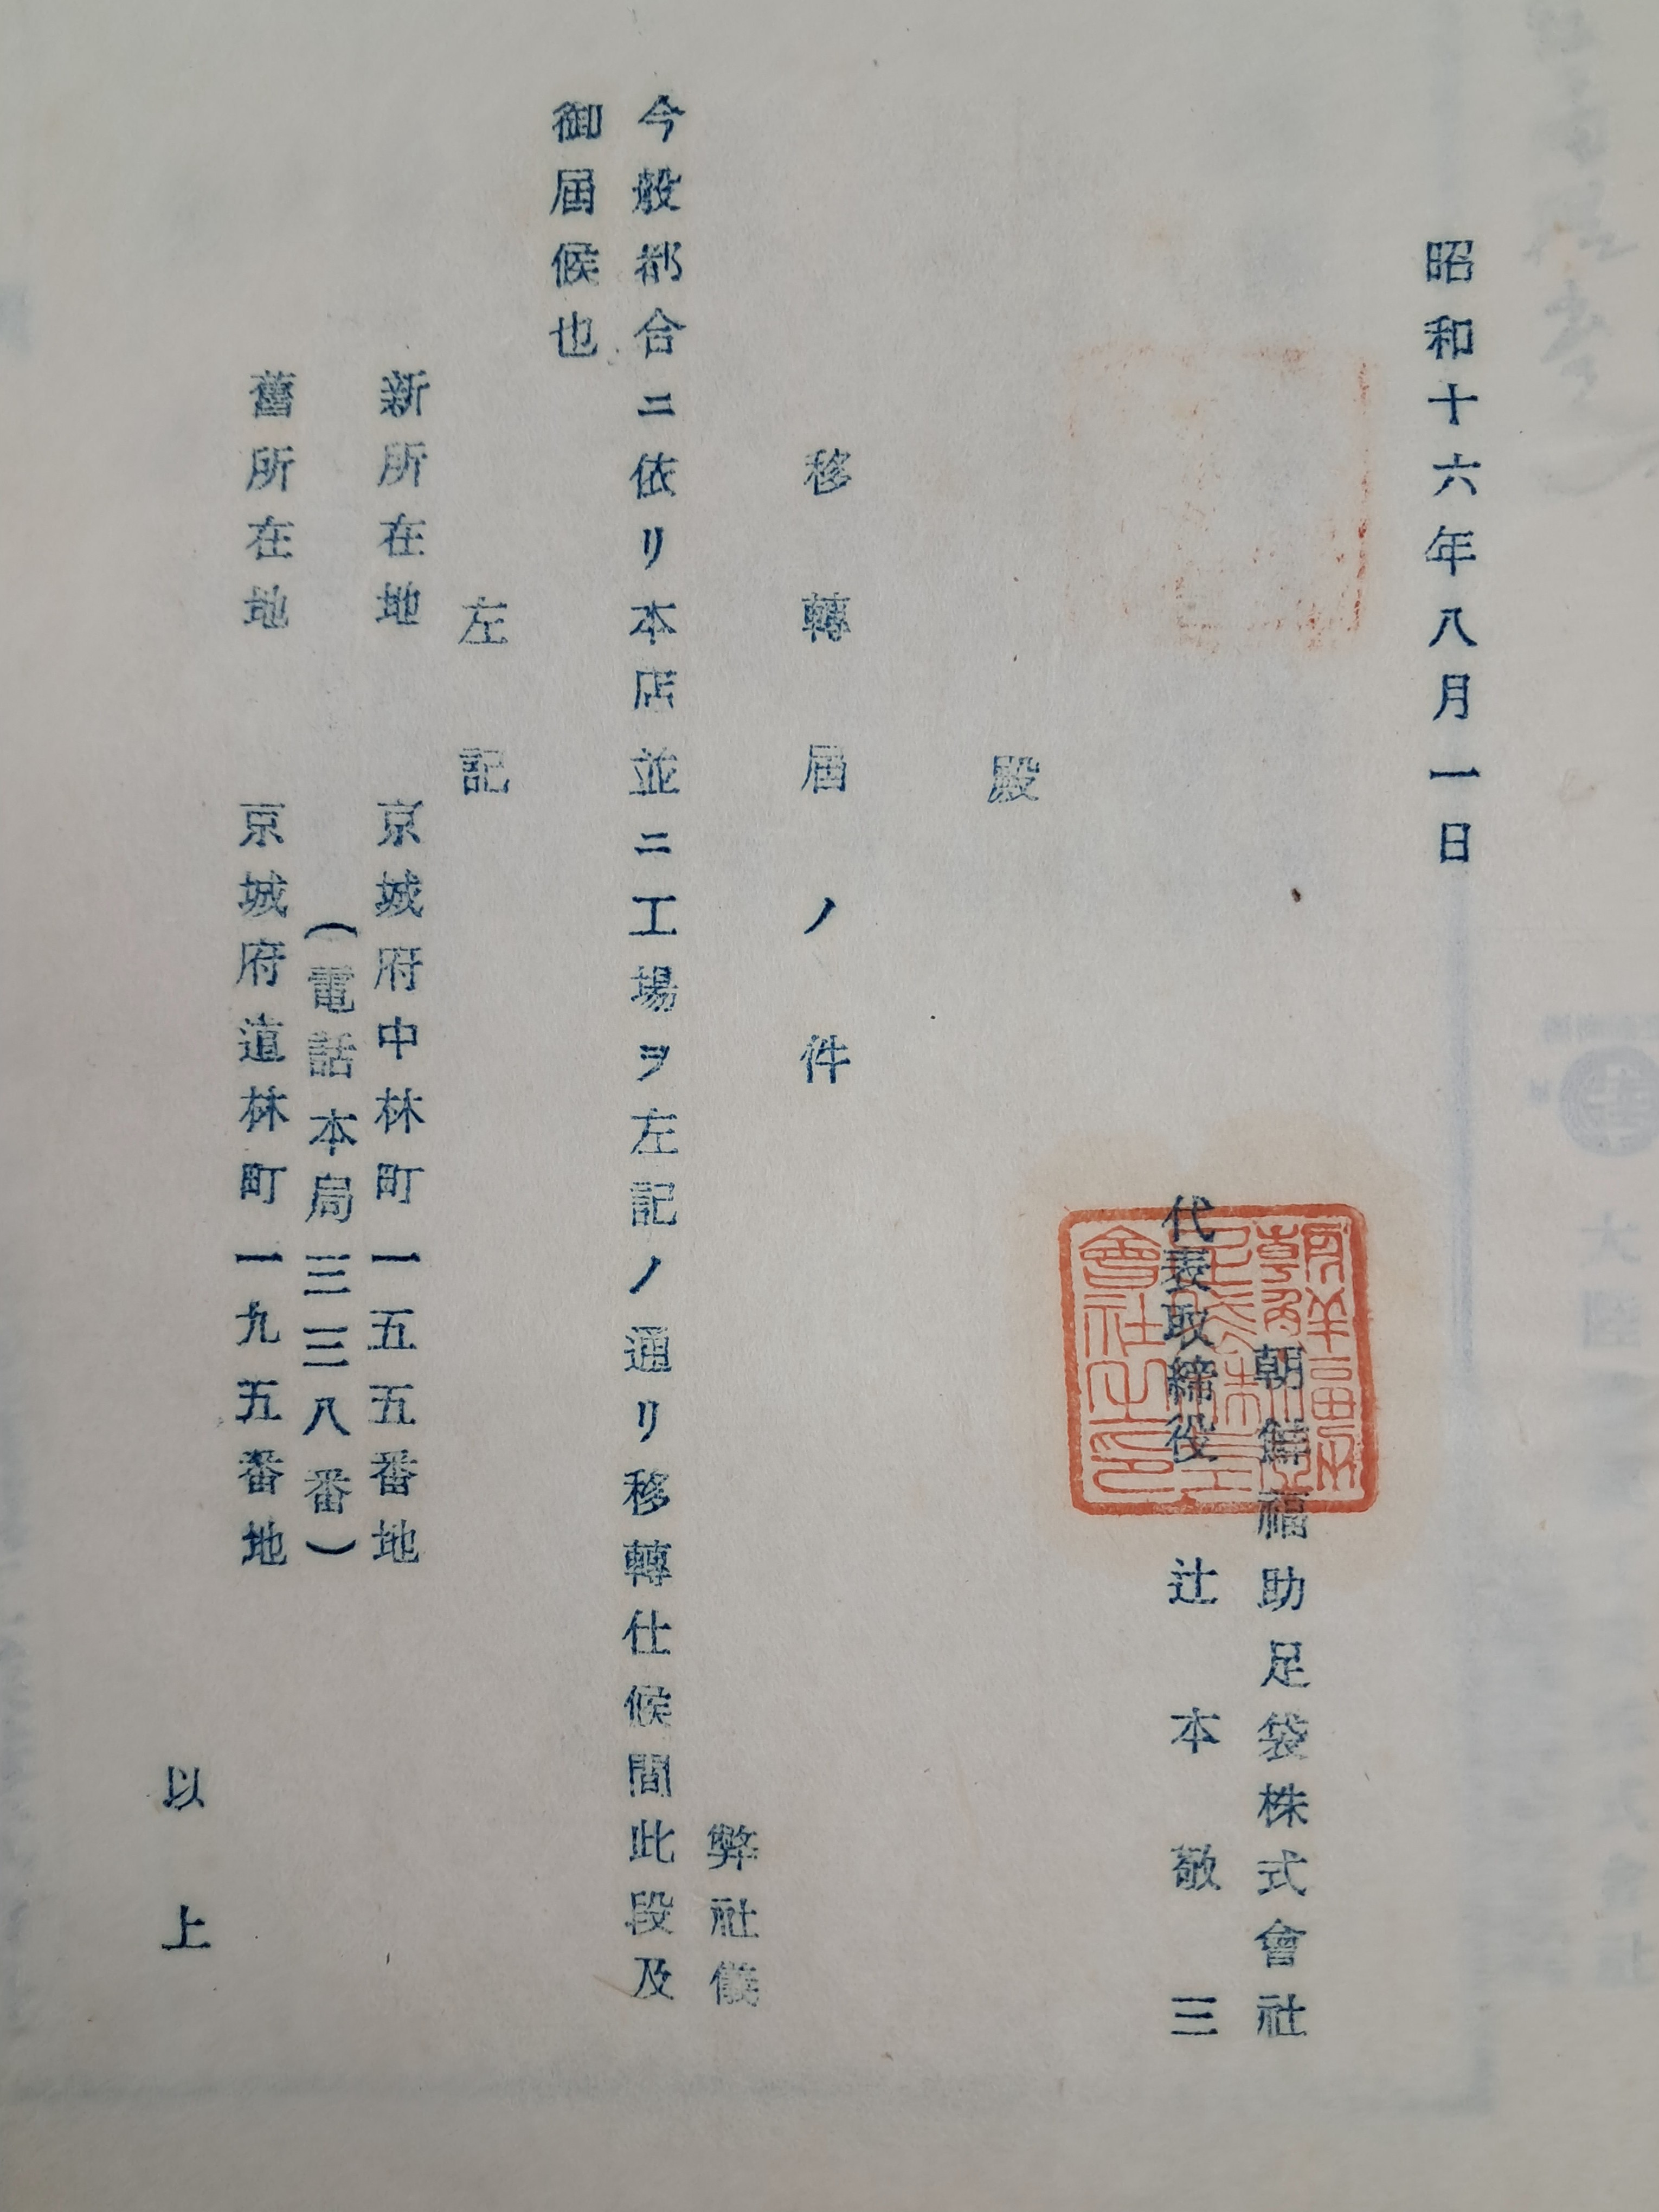 昭和十六年八月一日
朝鮮福助足袋株式會社
代表取締役 辻本敬三
殿
移轉届ノ件
弊社儀
今般都合ニ依リ本店並ニ工場ヲ左記ノ通リ移轉仕候間此段及
御届候也
左記
新所在地 京城府中林町一五五番地
(電話本局三三八番)
舊所在地 京城府道林町一九五番地
以上